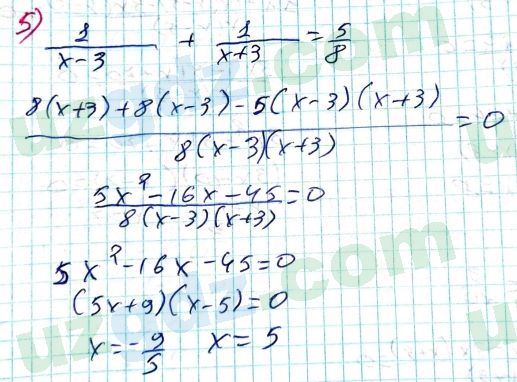 5) 1/(x-3) + 1/(x+3) = 5/8
(8(x+3)+8(x-3)-5(x-3)(x+3))/(8(x-3)(x+3)) = 0
(5x²-16x-45)/(8(x-3)(x+3)) = 0
5x²-16x-45=0
(5x+9)(x-5)=0
x=-9/5 x=5
uzgdz.com
uzgdz.com